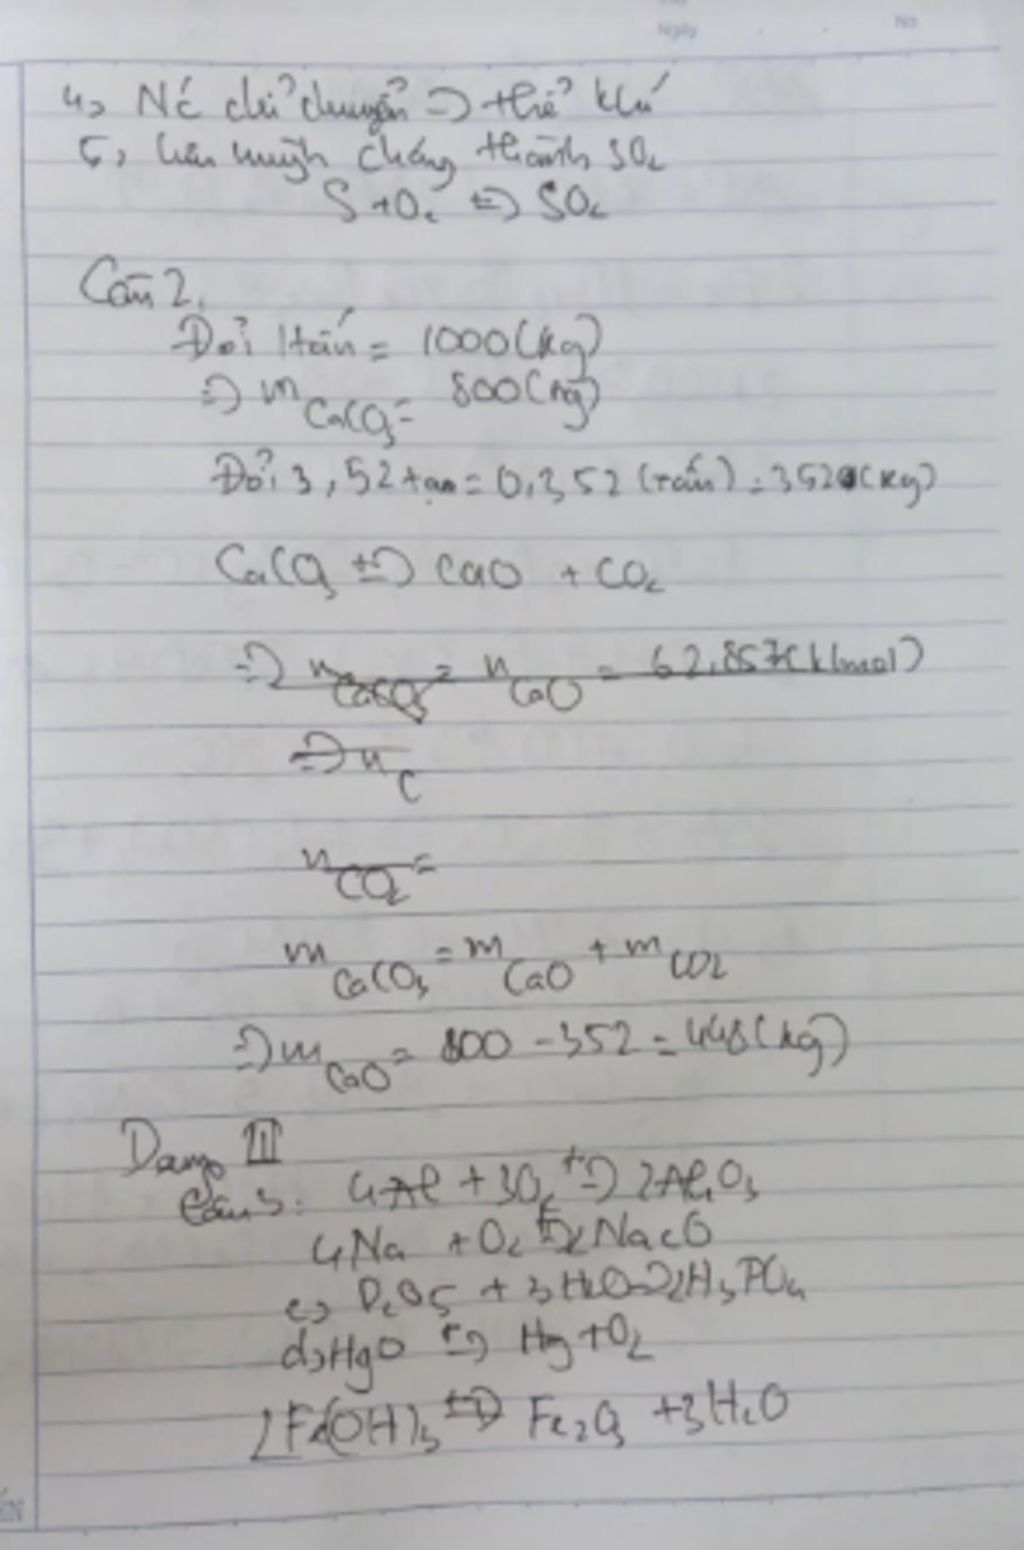 Ngày No
4, Nć chỉ chuyển => thể khí
5, lưu huỳnh cháy thành SO2
S + O2 t=> SO2
Câu 2.
Đổi 1 tấn = 1000 (kg)
=> m CaCO3 = 800 (kg)
Đổi 3,52 tạ = 0,352 (tấn) = 352 (kg)
CaCO3 t=> CaO + CO2
=> n CaCO3 = n CaO = 62,857 (kmol)
=> n C
n CO2 =
m CaCO3 = m CaO + m CO2
=> m CaO = 800 - 352 = 448 (kg)
Dạng III
Câu 3: 4Al + 3O2 t=> 2Al2O3
4Na + O2 t=> 2Na2O
c, P2O5 + 3H2O => 2H3PO4
d, HgO t=> Hg + O2
2Fe(OH)3 t=> Fe2O3 + 3H2O